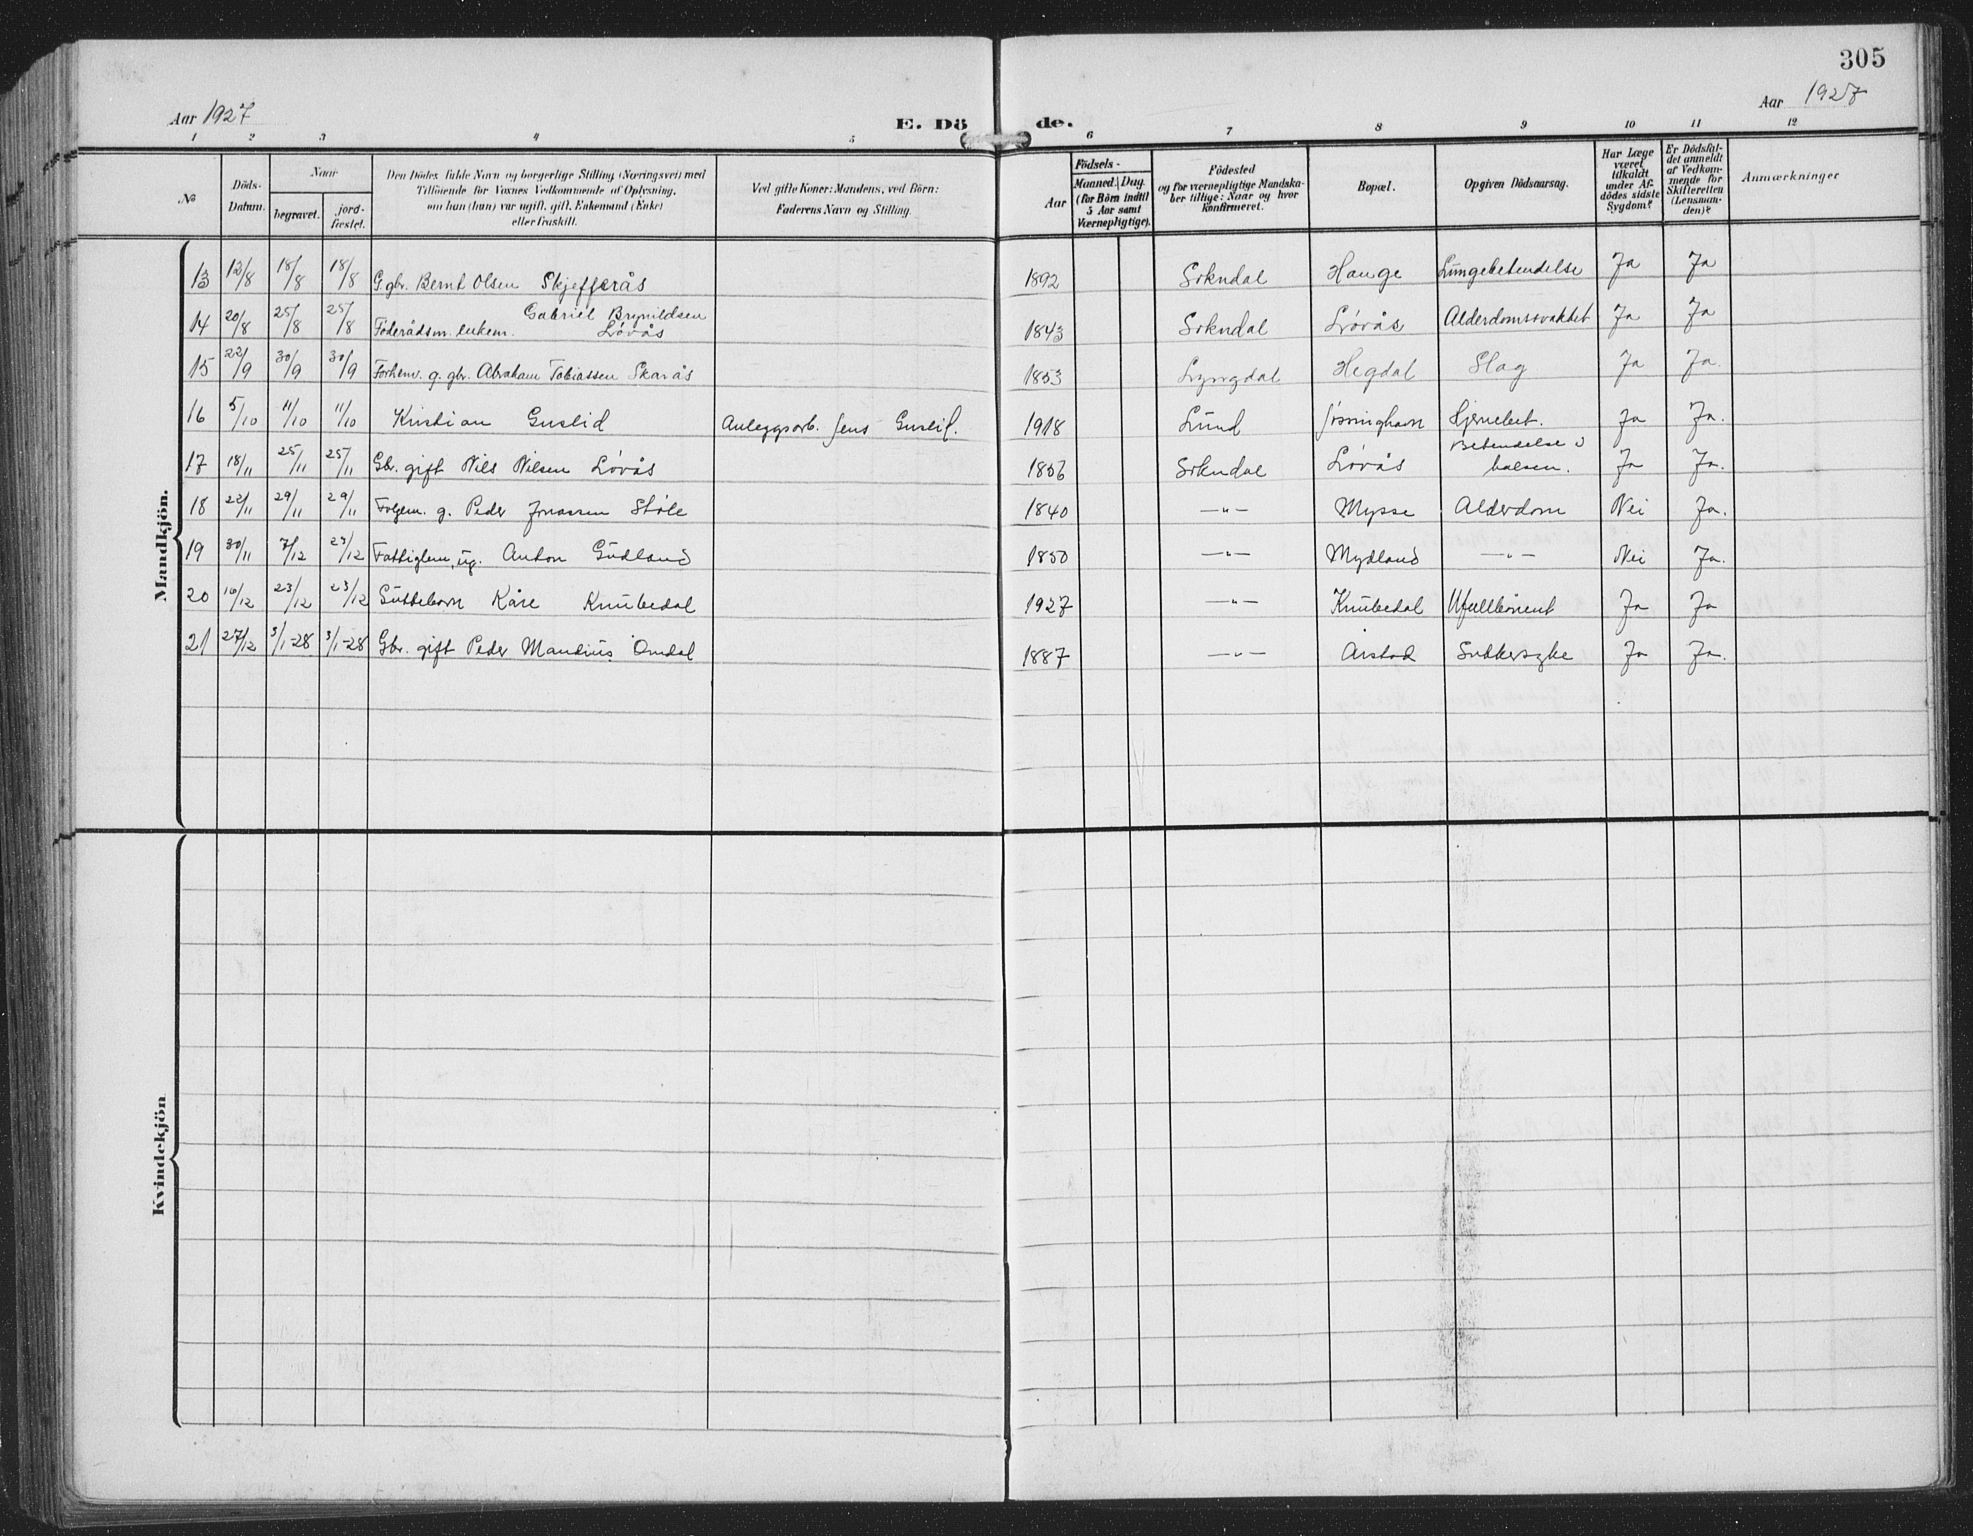 305
Aar 1927
E. Dö
de.
Aar 1927
1 2 3 4 5 6 7 8 9 10 11 12
№
Döds-
Datum.
Naar
begravet.
jord-
fæstet.
Den Dödes fulde Navn og borgerlige Stilling (Næringsvei) med
Tilföiende for Voxnes Vedkommende af Oplysning,
om han (hun) var ugift, gift, Enkemand (Enke)
eller fraskilt.
Ved gifte Koner: Mandens, ved Börn:
Faderens Navn og Stilling
Födsels-
Aar
Maaned. Dag.
(for Börn indtil
5 Aar samt
Værnepligtige).
Födested
og for værnepligtige Mandska-
ber tillige: Naar og hvor
Konfirmeret.
Bopæl.
Opgiven Dödsaarsag.
Har Læge
været
tilkaldt
under Af-
dödes sidste
Sygdom?
Er Dödsfal-
det anmeldt
af Vedkom-
mende for
Skifteretten
(Lensman-
den)?
Anmærkninger
Mandkjön.
13 12/8 18/8 18/8 Ggbr. Bernt Olsen Skjefferås 1892 Sokndal Hauge Lungebetendelse Ja Ja
14 20/8 25/8 25/8 Föderådsm. enkem. Gabriel Brynildsen Løvås 1843 Sokndal Løvås Alderdomssvakhet Ja Ja
15 22/9 30/9 30/9 Forhenv. g. gbr. Abraham Tobiassen Skarås 1853 Lyngdal Hegdal Slag Ja Ja.
16 5/10 11/10 11/10 Kristian Guslid Anleggsarb. Jens Guslid. 1918 Lund Jøssinghavn Hjernebet. Ja Ja.
17 18/11 25/11 25/11 Gbr. gift Nils Nilsen Løvås 1856 Sokndal Løvås Betendelse i halsen. Ja Ja.
18 22/11 29/11 29/11 Folgem. g. Peder Jonassen Støle 1840 —"— Mysse Alderdom Nei Ja.
19 30/11 7/12 23/12 Fattiglem, ug. Anton Gudland 1850 —"— Mydland —"— Nei Ja.
20 16/12 23/12 23/12 Guttebarn Kåre Knubedal 1927 —"— Knubedal Ufullbårent Ja Ja
21 27/12 3/1-28 3/1-28 Gbr. gift Peder Mandius Omdal 1887 —"— Årstad Sukkersyke Ja Ja.
Kvindekjön